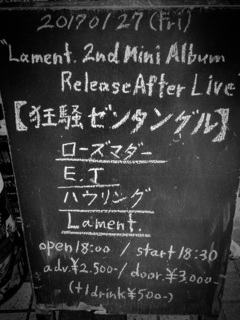 2017 01 27 (Fri)
"Lament. 2nd Mini Album
Release After Live
【狂騒ゼンタングル】
ローズマダー
E.T
ハウリング
Lament.
open 18:00 / start 18:30
adv.¥2.500-/door.¥3,000-
(+1drink ¥500-)